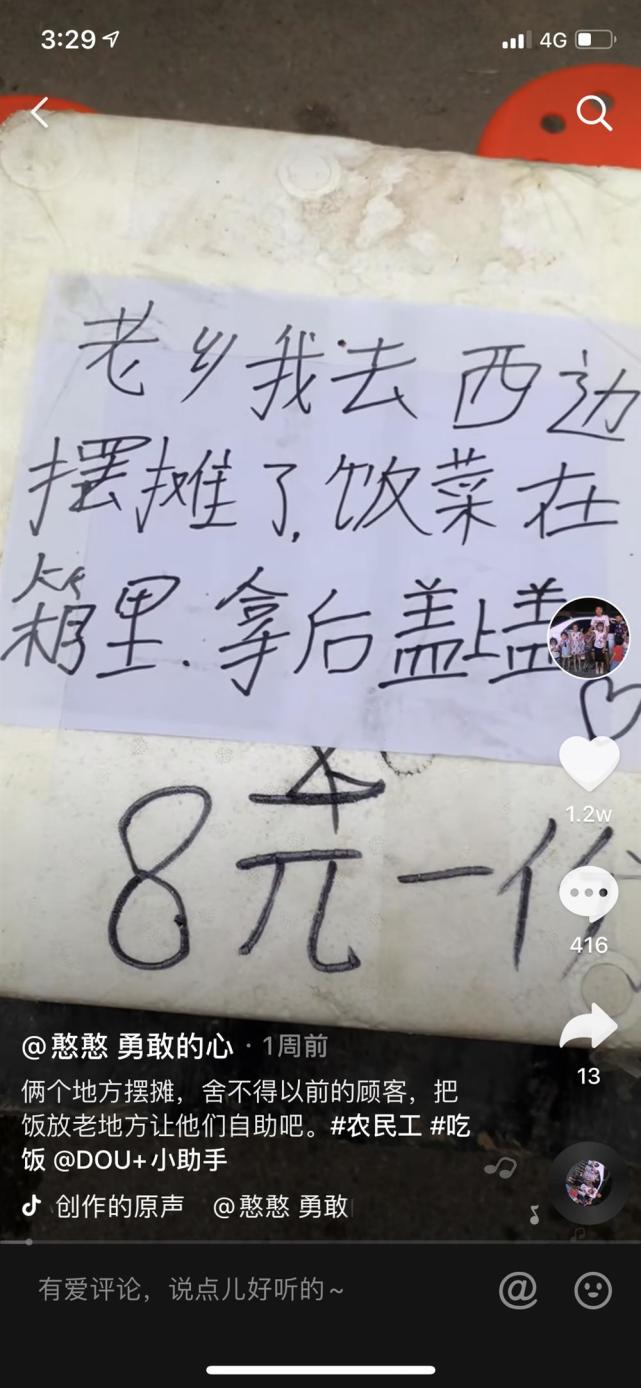 3:29
4G
老乡我去西边
摆摊了,饭菜在
箱里.拿后盖上盖
8元一份
1.2w
416
13
@憨憨 勇敢的心 · 1周前
俩个地方摆摊，舍不得以前的顾客，把
饭放老地方让他们自助吧。#农民工 #吃
饭 @DOU+小助手
创作的原声 @憨憨 勇敢
有爱评论，说点儿好听的~